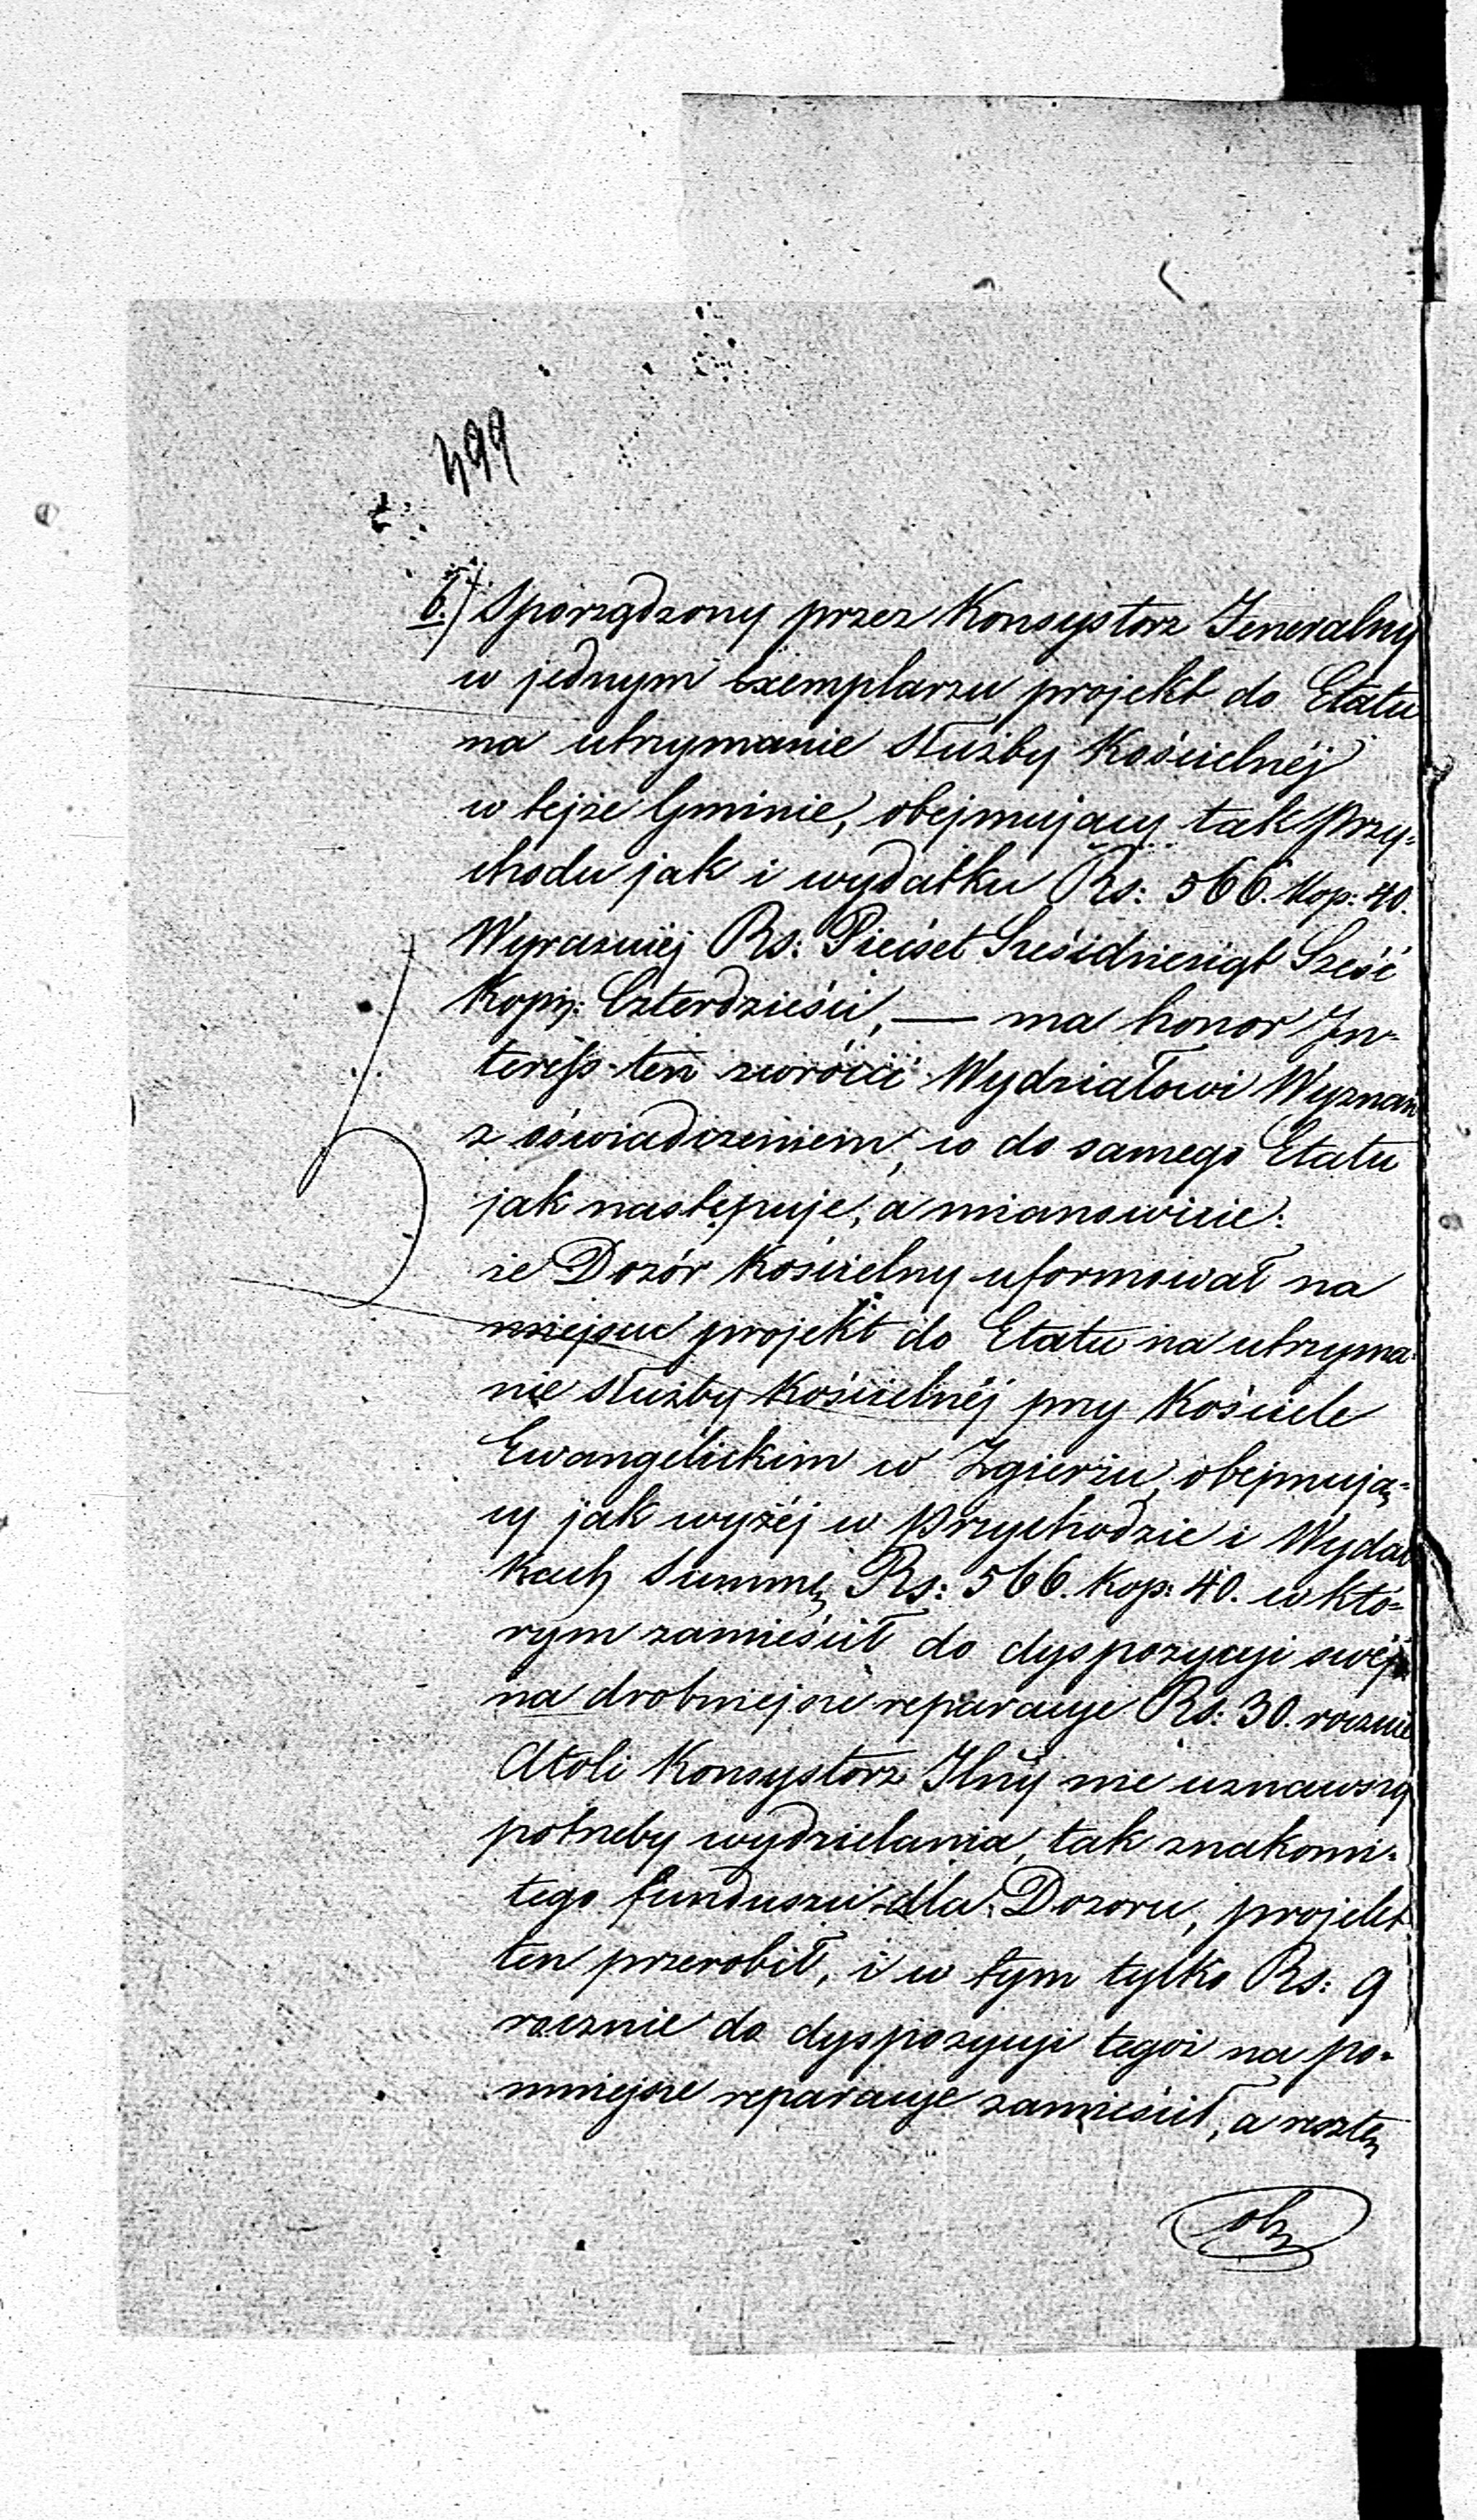 499
6.) Sporządzony przez Konsystorz Jeneralny
w jednym Exemplarzu projekt do Etatu
na utrzymanie Służby Kościelnéj
w tejże Gminie, obejmujący tak Przy-
chodu jak i wydatku Rs: 566. Kop: 40.
Wyraźniej Rs: Pięćset Sześćdziesiąt Sześć
Kopij: Czterdzieści, — ma honor In-
teress ten zwrócić Wydziałowi Wyznań
z oświadczeniem, co do samego Etatu
jak następuje, a mianowicie:
że Dozór Kościelny uformował na
miejscu projekt do Etatu na utrzyma-
nie służby Kościelnéj przy Kościele
Ewangelickim w Zgierzu, obejmują-
cy jak wyżéj w Przychodzie i Wydat
kach Summę Rs: 566. Kop: 40. w któ-
rym zamieścił do dyspozycyi swéj
na drobniejsze reparacye Rs: 30. rocznie
Atoli Konsystorz Jlny nie uznawszy
potrzeby wydzielania, tak znakomi-
tego funduszu dla Dozoru, projekt
ten przerobił, i w tym tylko Rs: 9
rocznie do dyspozycyi tegoż na po-
mniejsze reparacye zamieścił, a resztę